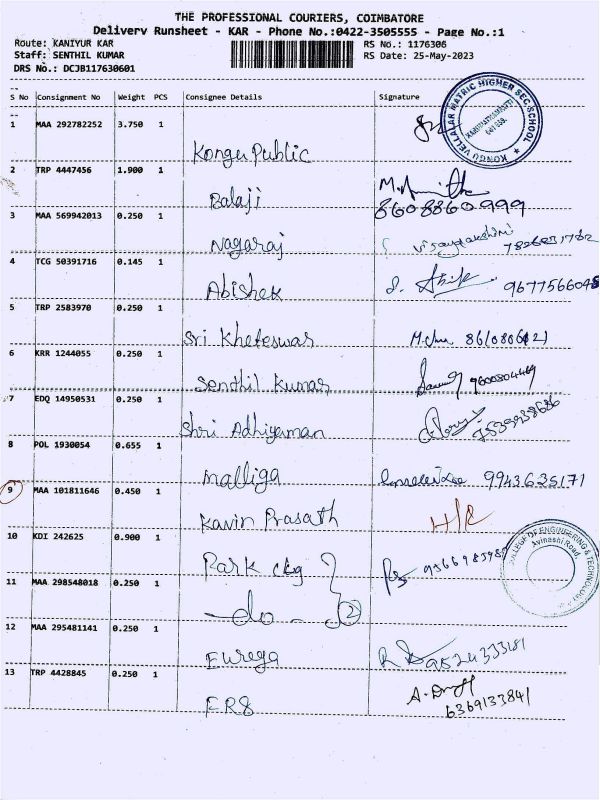 THE PROFESSIONAL COURIERS, COIMBATORE
Delivery Runsheet - KAR - Phone No.:0422-3505555 - Page No.:1
Route: KANIYUR KAR RS No.: 1176306
Staff: SENTHIL KUMAR RS Date: 25-May-2023
DRS No.: DCJB117630601
S No Consignment No Weight PCS Consignee Details Signature
KONGU VELLALAR MATRIC HIGHER SEC. SCHOOL
1 MAA 292782252 3.750 1
Kongu Public
2 TRP 4447456 1.900 1
Balaji 8608860999
3 MAA 569942013 0.250 1
Nagaraj
4 TCG 50391716 0.145 1
Abishek
5 TRP 2583970 0.250 1
Sri Kheteswar
6 KRR 1244055 0.250 1
Senthil Kumar 9600804469
7 EDQ 14950531 0.250 1
Shri Adhiyaman
8 POL 1930054 0.655 1
Malliga 9943625171
9 MAA 101811646 0.450 1
Kavin Prasath H/R
10 KDI 242625 0.900 1
COLLEGE OF ENGINEERING & TECHNOLOGY
Avinashi Road,
Park clg
11 MAA 298548018 0.250 1
- do - 2
12 MAA 295481141 0.250 1
Eurega 9524333181
13 TRP 4428845 0.250 1
ER8 6369133841